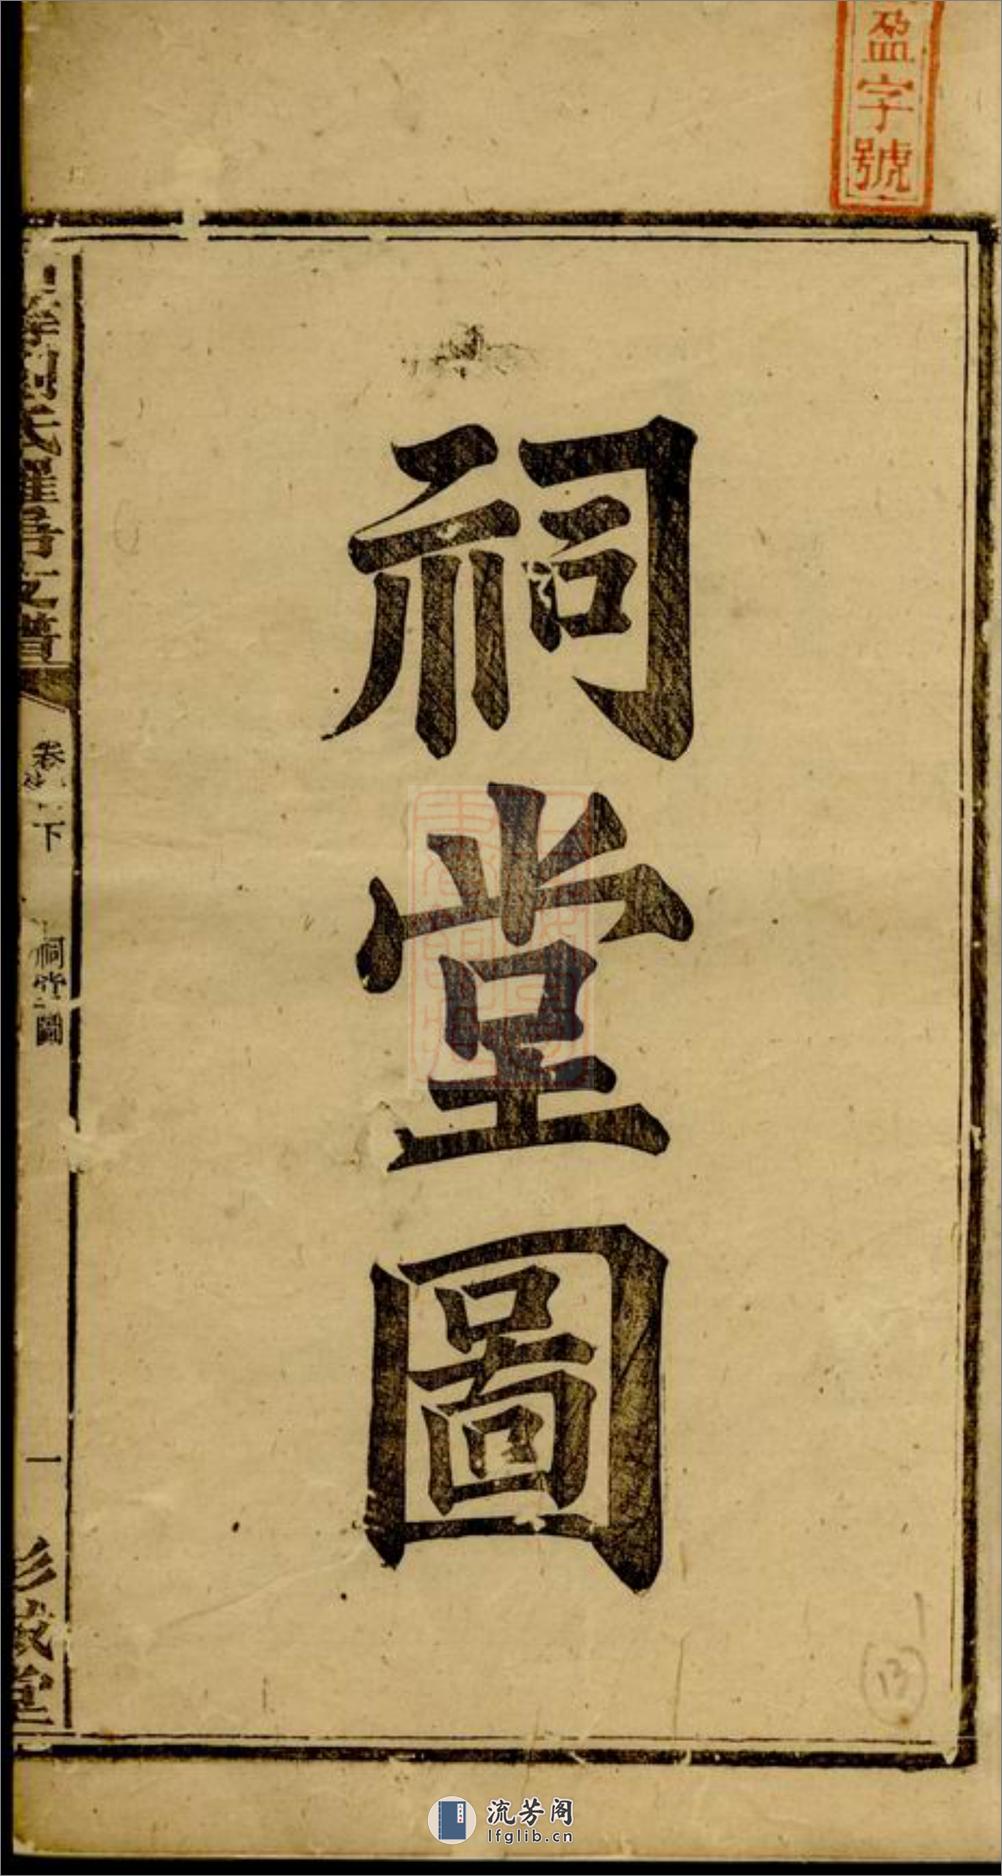 盈字號
祠堂圖
氏羅居支譜
卷
下
祠堂圖
一
彡成堂
流芳阁
lfglib.cn